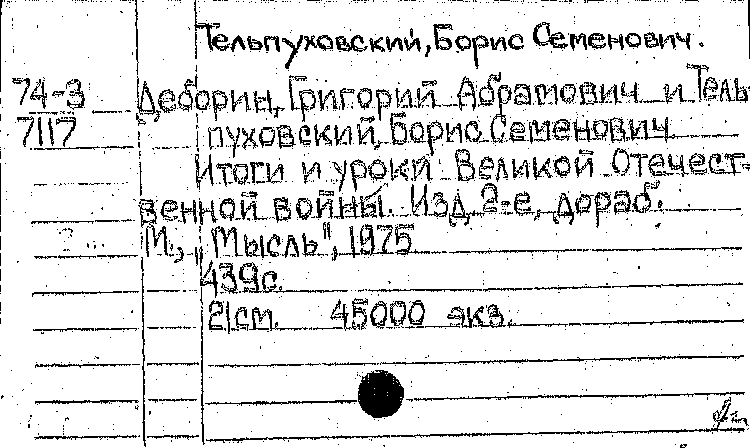 Тельпуховский, Борис Семенович.
74-3 Деборин, Григорий Абрамович и Тель-
7117 пуховский, Борис Семенович
Итоги и уроки Великой Отечест-
венной войны. Изд. 2-е, дораб.
М., „Мысль", 1975
439с.
21см. 45000 экз.